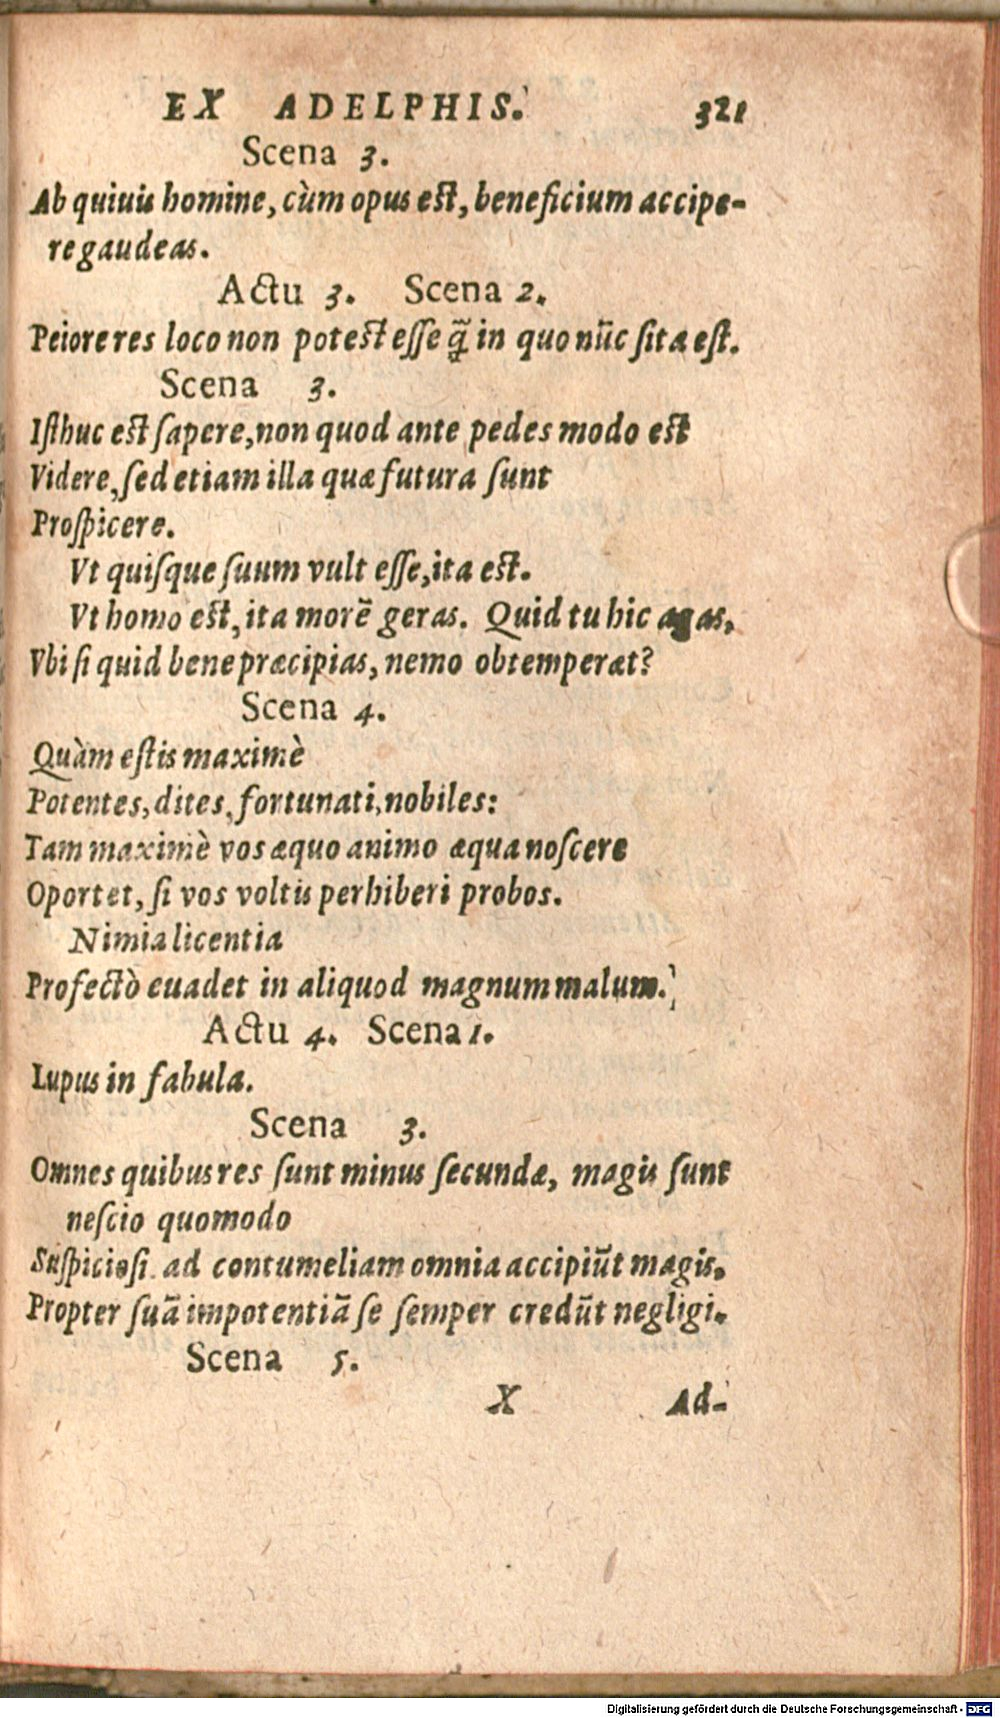 EX ADELPHIS. 321
Scena 3.
Ab quiuis homine, cùm opus est, beneficium accipe-
re gaudeas.
Actu 3. Scena 2.
Peiore res loco non potest esse q̃ in quo nũc sita est.
Scena 3.
Isthuc est sapere, non quod ante pedes modo est
Videre, sed etiam illa quæ futura sunt
Prospicere.
Vt quisque suum vult esse, ita est.
Vt homo est, ita morẽ geras. Quid tu hic agas,
Vbi si quid bene præcipias, nemo obtemperat?
Scena 4.
Quàm estis maximè
Potentes, dites, fortunati, nobiles:
Tam maximè vos æquo animo æqua noscere
Oportet, si vos voltis perhiberi probos.
Nimia licentia
Profectò euadet in aliquod magnum malum.
Actu 4. Scena 1.
Lupus in fabula.
Scena 3.
Omnes quibus res sunt minus secundæ, magis sunt
nescio quomodo
Suspiciosi. ad contumeliam omnia accipiũt magis.
Propter suã impotentiã se semper credũt negligi.
Scena 5.
X Ad-
Digitalisierung gefördert durch die Deutsche Forschungsgemeinschaft - DFG